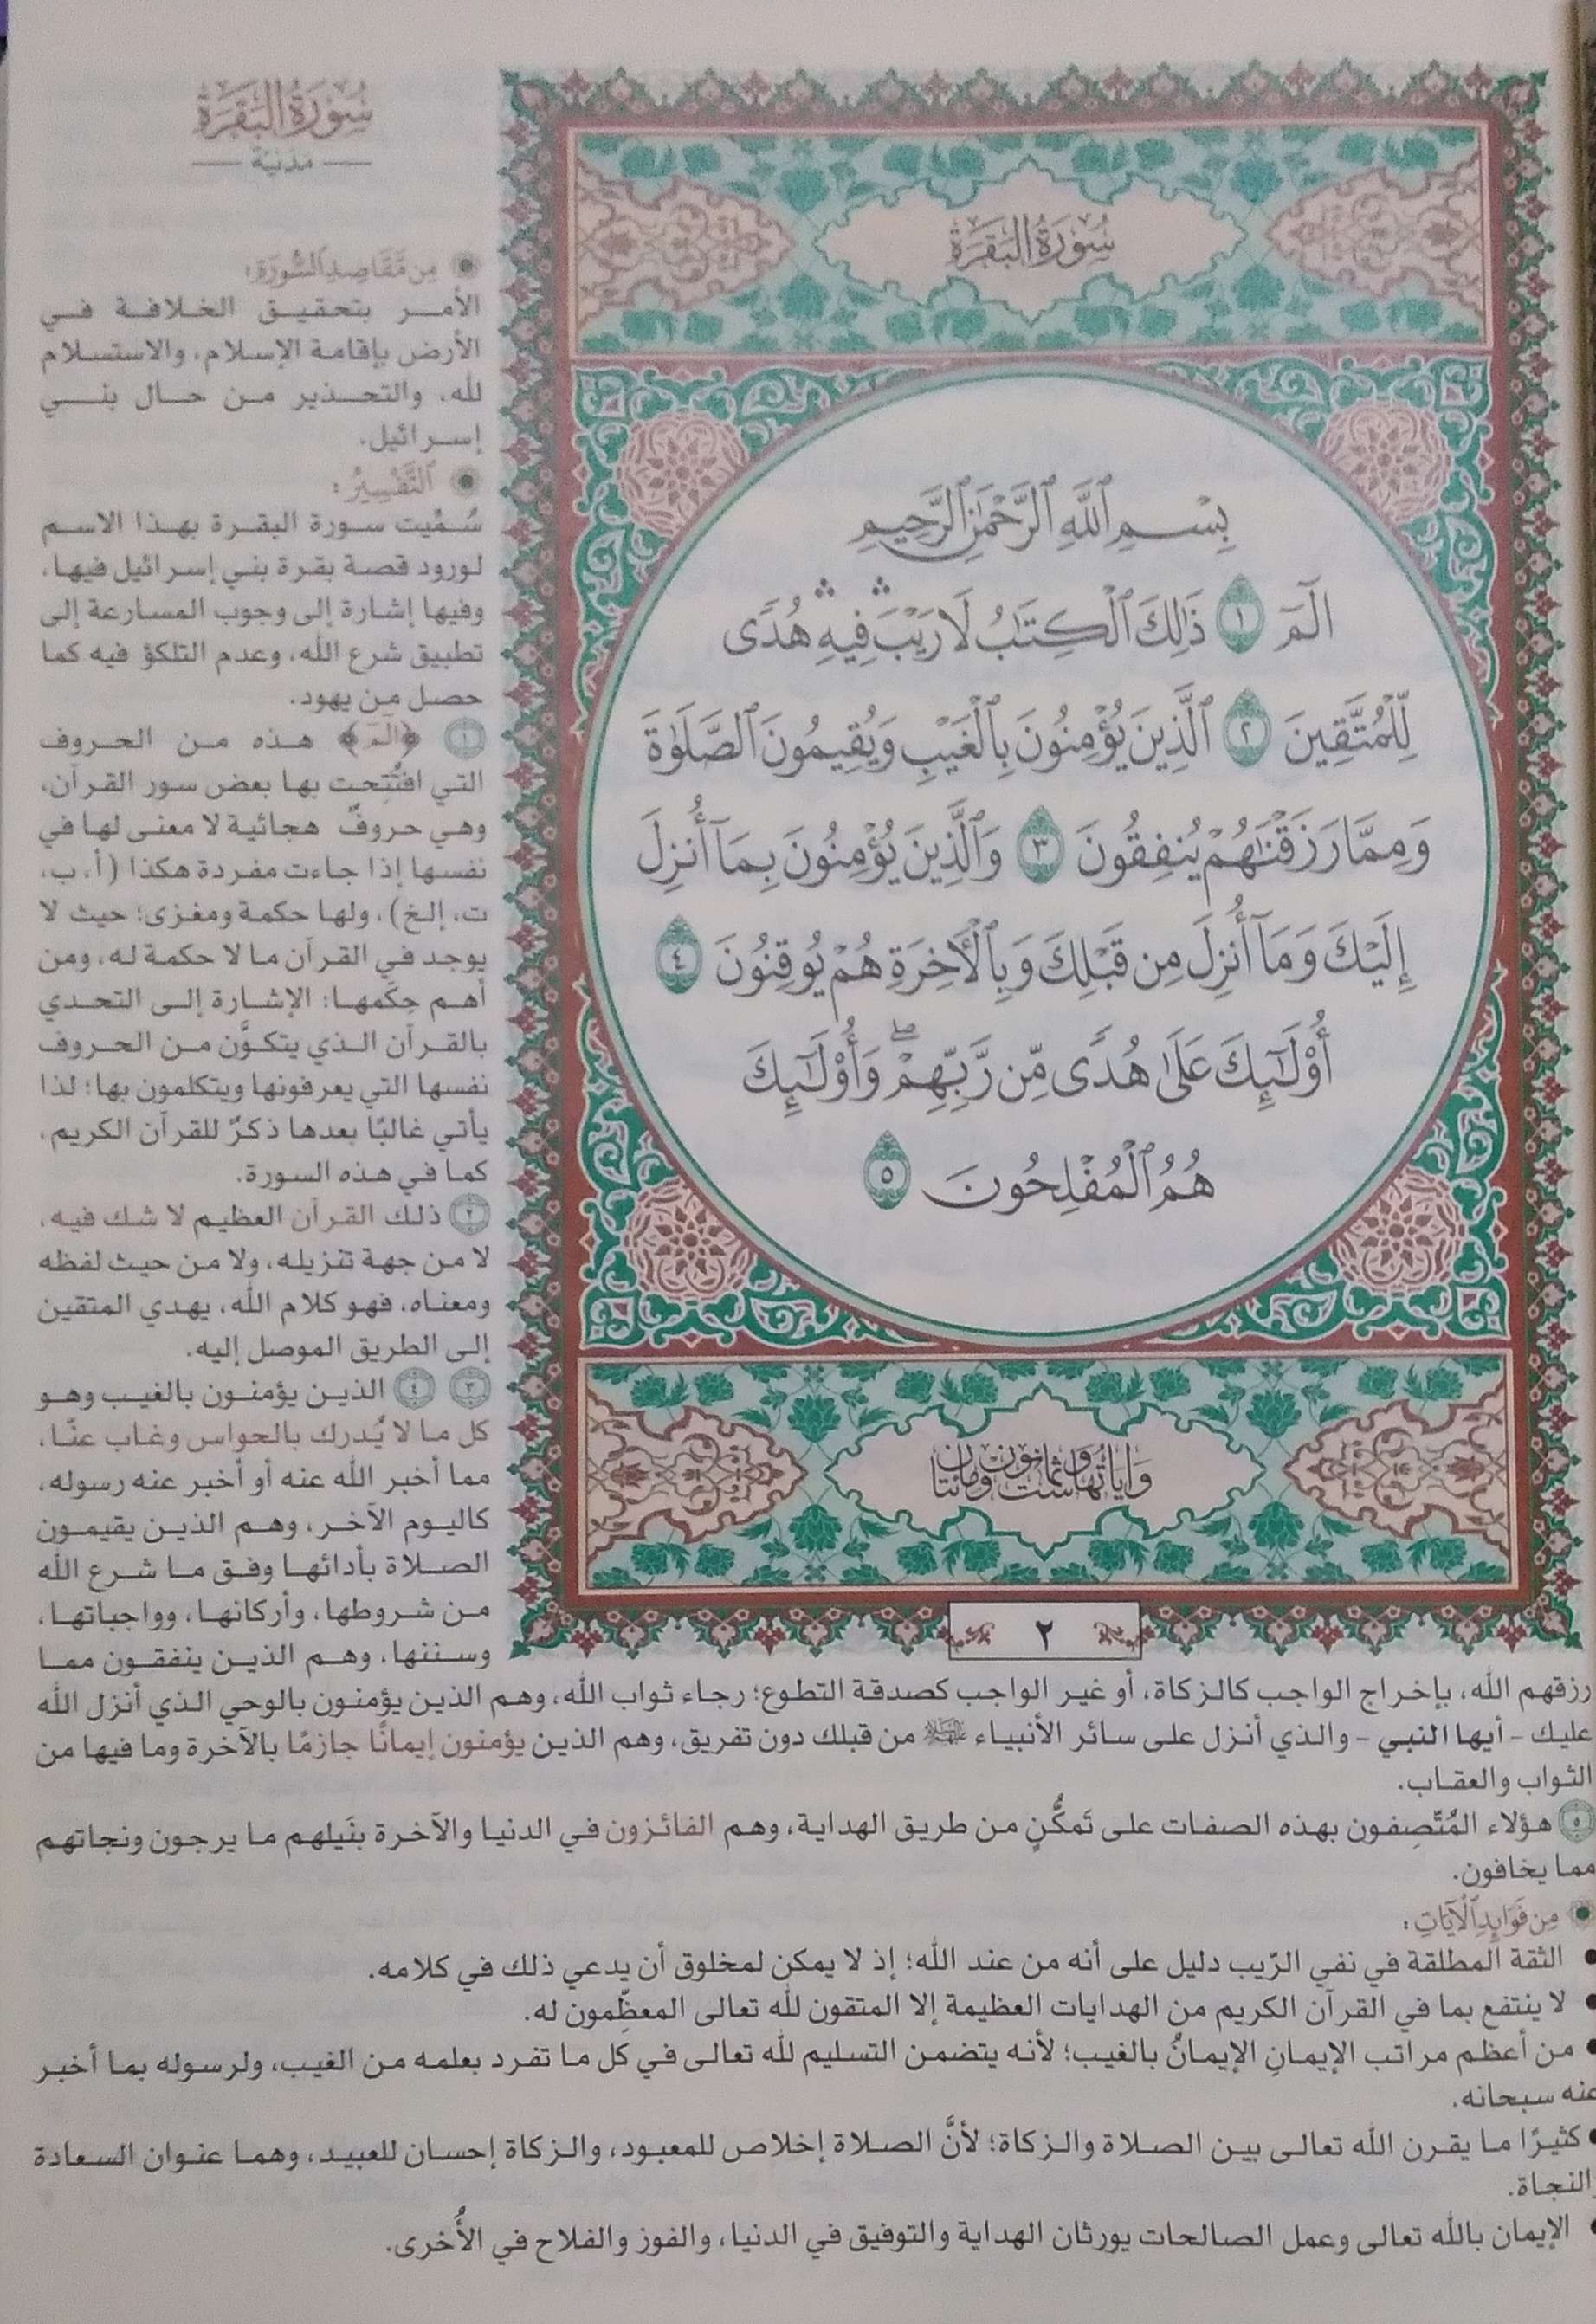 سُورَةُ البَقَرَةِ
بِسْمِ ٱللَّهِ ٱلرَّحْمَٰنِ ٱلرَّحِيمِ
الٓمٓ ١ ذَٰلِكَ ٱلْكِتَٰبُ لَا رَيْبَ ۛ فِيهِ ۛ هُدًى
لِّلْمُتَّقِينَ ٢ ٱلَّذِينَ يُؤْمِنُونَ بِٱلْغَيْبِ وَيُقِيمُونَ ٱلصَّلَوٰةَ
وَمِمَّا رَزَقْنَٰهُمْ يُنفِقُونَ ٣ وَٱلَّذِينَ يُؤْمِنُونَ بِمَآ أُنزِلَ
إِلَيْكَ وَمَآ أُنزِلَ مِن قَبْلِكَ وَبِٱلْأَخِرَةِ هُمْ يُوقِنُونَ ٤
أُو۟لَٰٓئِكَ عَلَىٰ هُدًى مِّن رَّبِّهِمْ ۖ وَأُو۟لَٰٓئِكَ
هُمُ ٱلْمُفْلِحُونَ ٥
وآياتها ست وثمانون ومائتان
٢
سُورَةُ البَقَرَةِ
مَدَنيّة
مِن مَّقَاصِدِ السُّورَةِ:
الأمر بتحقيق الخلافة في
الأرض بإقامة الإسلام، والاستسلام
لله، والتحذير من حال بني
إسرائيل.
التَّفْسِيرُ:
سُمِّيت سورة البقرة بهذا الاسم
لورود قصة بقرة بني إسرائيل فيها،
وفيها إشارة إلى وجوب المسارعة إلى
تطبيق شرع الله، وعدم التلكؤ فيه كما
حصل من يهود.
١ ﴿الٓمٓ﴾ هذه من الحروف
التي افتُتِحت بها بعض سور القرآن،
وهي حروفٌ هجائية لا معنى لها في
نفسها إذا جاءت مفردة هكذا (أ، ب،
ت، إلخ)، ولها حكمة ومغزى؛ حيث لا
يوجد في القرآن ما لا حكمة له، ومن
أهم حِكَمها: الإشارة إلى التحدي
بالقرآن الذي يتكوَّن من الحروف
نفسها التي يعرفونها ويتكلمون بها؛ لذا
يأتي غالبًا بعدها ذكرٌ للقرآن الكريم،
كما في هذه السورة.
٢ ذلك القرآن العظيم لا شك فيه،
لا من جهة تنزيله، ولا من حيث لفظه
ومعناه، فهو كلام الله، يهدي المتقين
إلى الطريق الموصل إليه.
٣ ٤ الذين يؤمنون بالغيب وهو
كل ما لا يُدرك بالحواس وغاب عنّا،
مما أخبر الله عنه أو أخبر عنه رسوله،
كاليوم الآخر، وهم الذين يقيمون
الصلاة بأدائها وفق ما شرع الله
من شروطها، وأركانها، وواجباتها،
وسننها، وهم الذين ينفقون مما
رزقهم الله، بإخراج الواجب كالزكاة، أو غير الواجب كصدقة التطوع؛ رجاء ثواب الله، وهم الذين يؤمنون بالوحي الذي أنزل الله
عليك - أيها النبي - والذي أنزل على سائر الأنبياء من قبلك دون تفريق، وهم الذين يؤمنون إيمانًا جازمًا بالآخرة وما فيها من
الثواب والعقاب.
٥ هؤلاء المُتَّصِفون بهذه الصفات على تَمكُّنٍ من طريق الهداية، وهم الفائزون في الدنيا والآخرة بنَيلهم ما يرجون ونجاتهم
مما يخافون.
مِن فَوَائِدِ الْآيَاتِ:
• الثقة المطلقة في نفي الرّيب دليل على أنه من عند الله؛ إذ لا يمكن لمخلوق أن يدعي ذلك في كلامه.
• لا ينتفع بما في القرآن الكريم من الهدايات العظيمة إلا المتقون لله تعالى المعظِّمون له.
• من أعظم مراتب الإيمانِ الإيمانُ بالغيب؛ لأنه يتضمن التسليم لله تعالى في كل ما تفرد بعلمه من الغيب، ولرسوله بما أخبر
عنه سبحانه.
• كثيرًا ما يقرن الله تعالى بين الصلاة والزكاة؛ لأنَّ الصلاة إخلاص للمعبود، والزكاة إحسان للعبيد، وهما عنوان السعادة
والنجاة.
• الإيمان بالله تعالى وعمل الصالحات يورثان الهداية والتوفيق في الدنيا، والفوز والفلاح في الأُخرى.